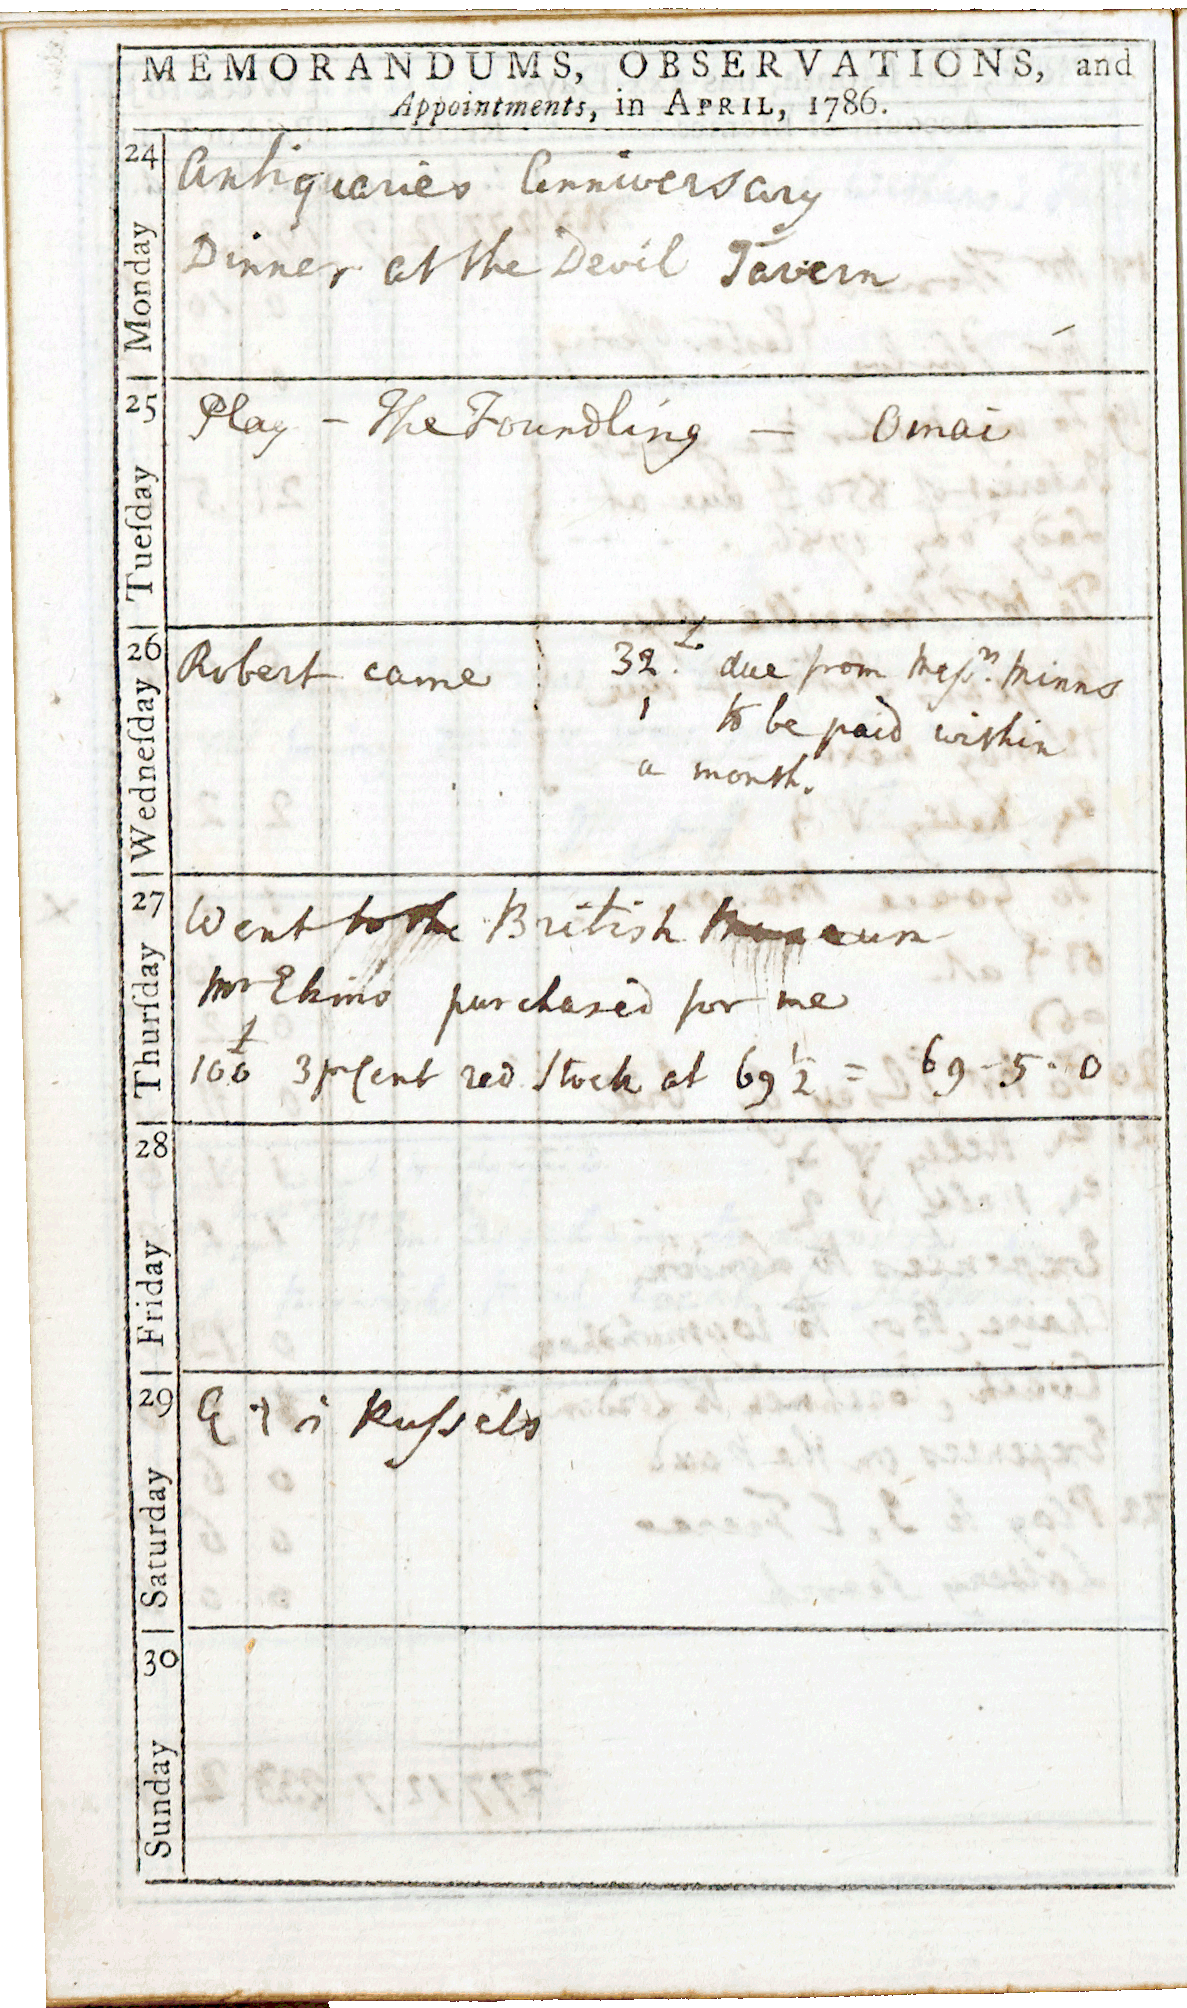 MEMORANDUMS, OBSERVATIONS, and
Appointments, in APRIL, 1786.
24 Monday
Antiquaries Anniversary
Dinner at the Devil Tavern
25 Tueſday
Play – The Foundling – Omai
26 Wedneſday
Robert came
32.£ due from Meſsrs. Minns
1 to be paid within
a month.
27 Thurſday
Went to the British Museum
Mr Ekins purchased for me
100£ 3 pr Cent red Stock at 69 1/2 = 69-5-0
28
Friday
29 Saturday
Ruſsels
30
Sunday